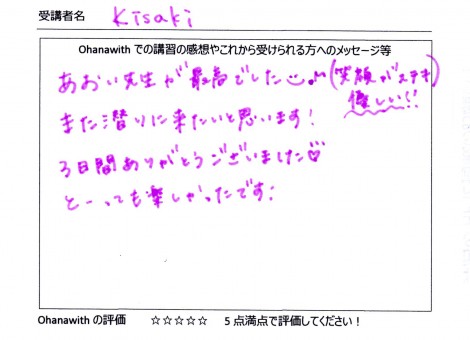 受講者名 Kisaki
Ohanawith での講習の感想やこれから受けられる方へのメッセージ等
あおい先生が最高でした(笑顔がステキ
優しい!!)
また潜りに来たいと思います!
3日間ありがとうございました♡
とーっても楽しかったです:
Ohanawith の評価 ☆☆☆☆☆ 5点満点で評価してください!